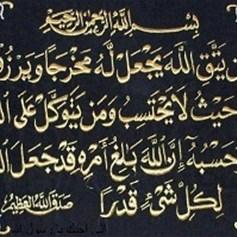 بِسْمِ اللَّهِ الرَّحْمَنِ الرَّحِيمِ
مَن يَتَّقِ اللَّهَ يَجْعَل لَّهُ مَخْرَجًا وَيَرْزُ
حَيْثُ لَا يَحْتَسِبُ وَمَن يَتَوَكَّلْ عَلَى ال
حَسْبُهُ إِنَّ اللَّهَ بَالِغُ أَمْرِهِ قَدْ جَعَلَ ال
لِكُلِّ شَيْءٍ قَدْرًا صَدَقَ اللَّهُ الْعَظِيمُ
احبك يا رسول